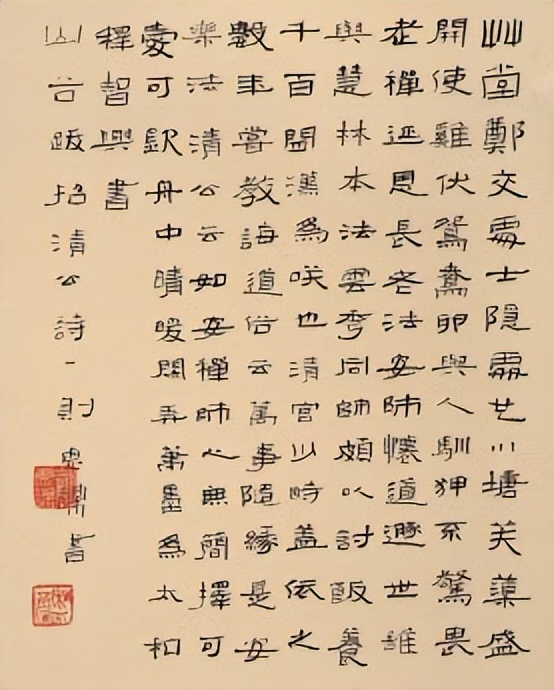 艸堂鄭交處士隱處也小塘芙蕖盛
開使雞伏鴛鴦卵與人馴狎不驚畏
老禪延恩長老法安師懷道遯世雖
與慧林本法雲秀同師頗以討飯養
千百閒漢為咲也清官少時蓋依之
數年嘗教誨道俗云萬事隨緣是安
樂法清公云如安禪師心無簡擇可
愛可欽舟中晴暖閒弄筆墨為太和
釋智興書
山谷跋招清公詩一則書